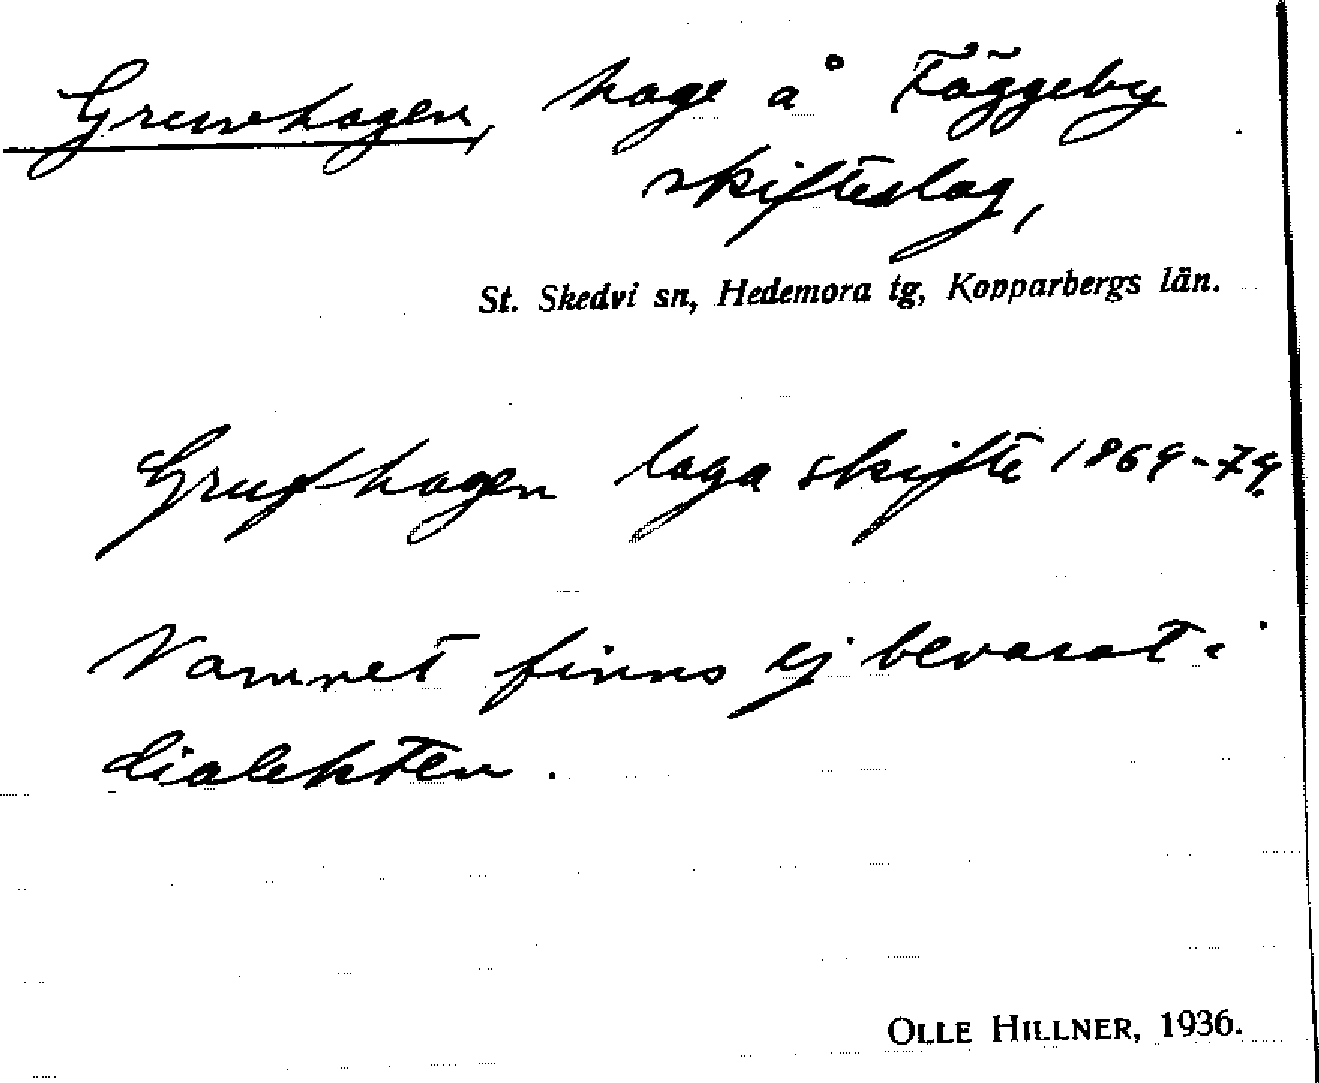 Gruvhagen, hage å Fäggeby
skifteslag,
St. Skedvi sn, Hedemora tg, Kopparbergs län.
Grufhagen laga skifte 1869-79.
Namnet finns ej bevarat i
dialekten.
OLLE HILLNER, 1936.